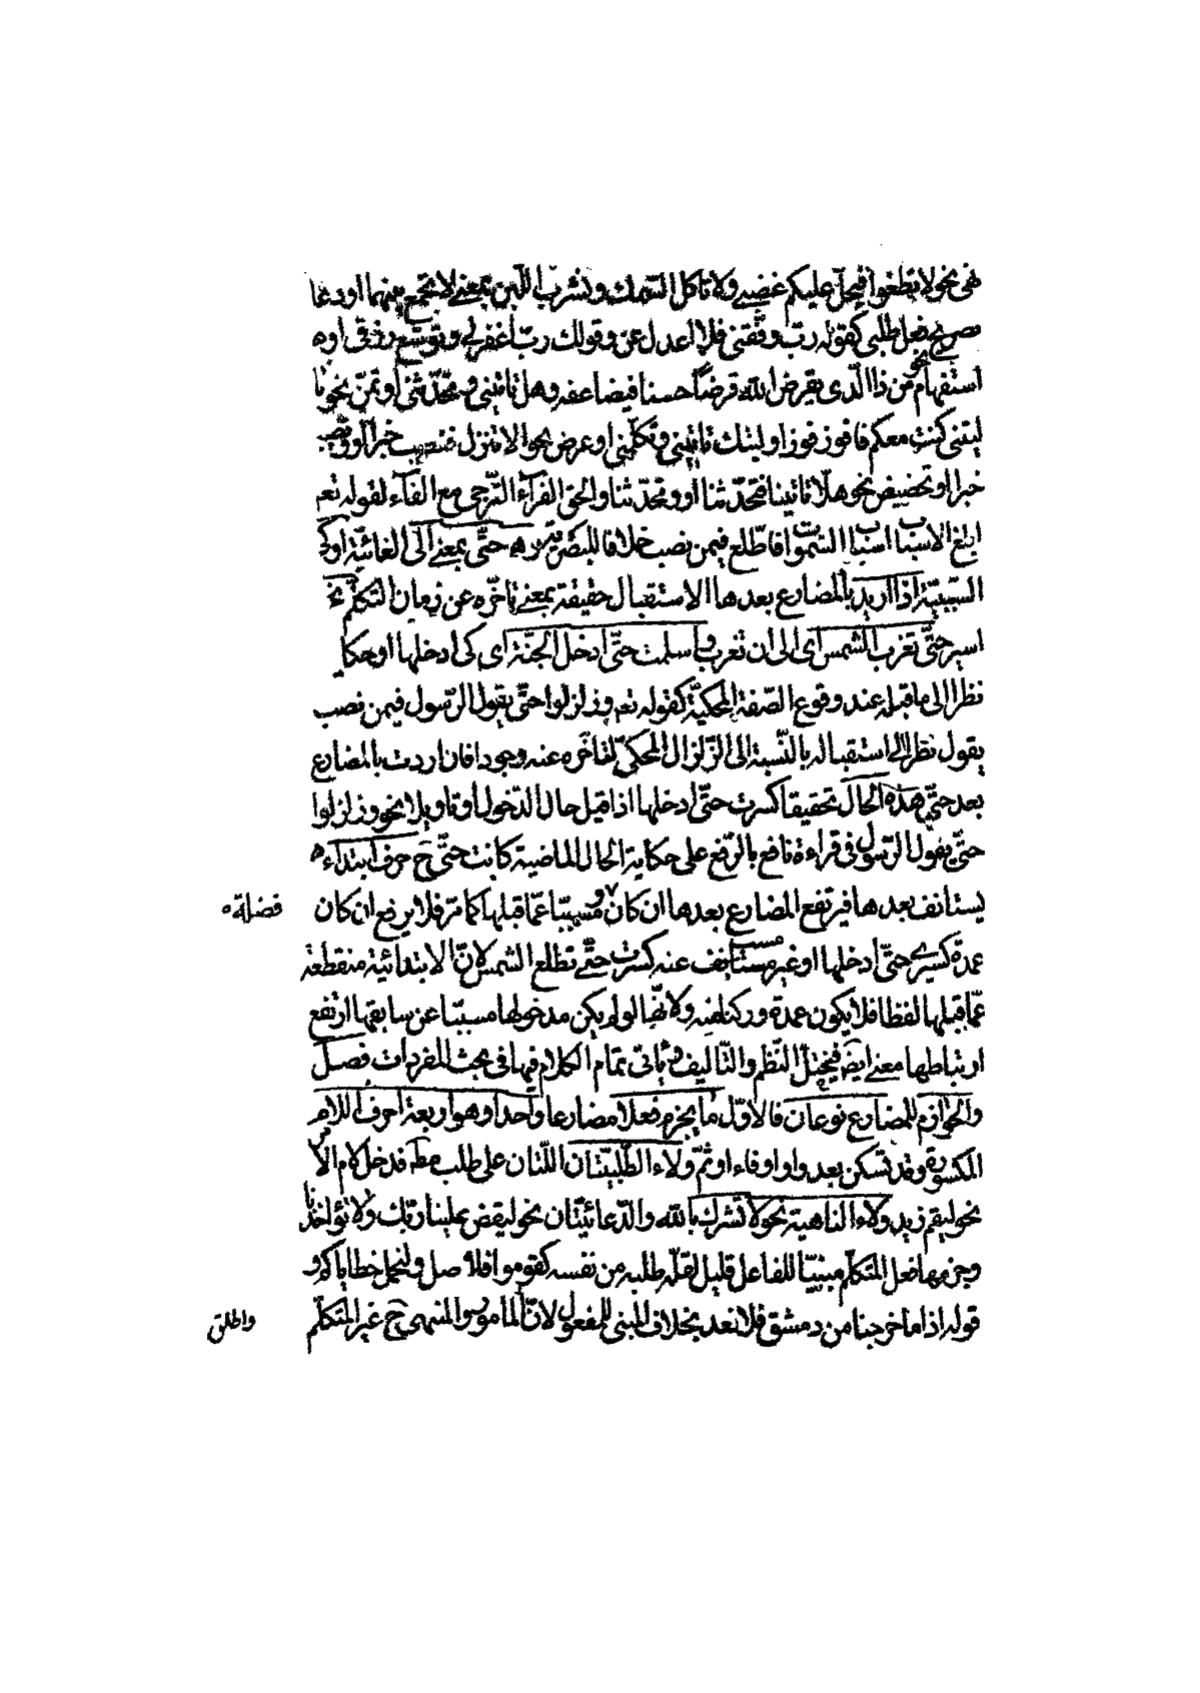 نهى نحو لا تطغوا فيحل عليكم غضبى ولا تاكل السمك وتشرب اللبن بمعنى لا تجمع بينهما او دعا
صريح بفعل طلبى كقوله ربّ وفّقنى فلا اعدل عن وقولك ربّ اغفر لى وتوسّع رزقى او
استفهام نحو من ذا الّذى يقرض الله قرضًا حسنا فيضاعفه وهل تاتينى وتحدّثنى او تمنّ نحو يا
ليتنى كنت معكم فافوز فوزا وليتك تاتينى وتكلّمنى او عرض نحو الا تنزل فتصيب خيرا او وتصيب
خيرا او تحضيض نحو هلّا تاتينا فتحدّثنا او وتحدّثنا والحق الفرّآء التّرجى مع الفآء لقوله تعم
ابلغ الاسباب اسباب السّموات فاطّلع فيمن نصب خلافا للبصريّين حتّى بمعنى الى الغائيّة او كى
السّببيّة اذا اريد بالمضارع بعدها الاستقبال حقيقة بمعنى تاخّره عن زمان التكلّم نحو
اسير حتّى تغرب الشمس اى الى ان تغرب واسلمت حتّى ادخل الجنّة اى كى ادخلها او حكا
نظرا الى ما قبله عند وقوع الصّفة المحكيّة كقوله تعم وزلزلوا حتّى يقول الرّسول فيمن نصب
يقول نظرا الى استقباله بالنّسبة الى الزّلزال المحكىّ لتاخّره عنه وجودا فان اردت بالمضارع
بعد حتّى هذه الحال تحقيقا كسرت حتّى ادخلها اذا قيل حال الدّخول او تاويلا نحو وزلزلوا
حتّى يقول الرّسول فى قراءة نافع بالرّفع على حكاية الحال الماضية كانت حتّى ح حرف ابتداء
يستانف بعدها فيرتفع المضارع بعدها ان كان ومسبّبا عمّا قبلها كما مرّ فلا يرفع ان كان
فضلة
عمدة كسيرى حتّى ادخلها او غير مسبب عنه كسرت حتّى تطلع الشمس لانّ الابتدائية منقطعة
عمّا قبلها لفظا فلا يكون عمدة وركنا منه ولانّها لو لم يكن مدخولها مسبّبا عن سابقها ارتفع
ارتباطها معنى ايضا فيختلّ النّظم والتّاليف وياتى تمام الكلام فيها فى بحث المفردات فصل
والجوازم للمضارع نوعان فالاوّل ما يجزم فعلا مضارعا واحدا وهو اربعة احرف اللام
المكسورة وقد تسكن بعد واو او فاء او ثمّ ولاء الطّلبيّتان اللّتان على طلب فدخل لام الامر
نحو ليقم زيد ولاء الناهية نحو لا تشرك بالله والدّعائيّتان نحو ليقض علينا ربّك ولا تؤاخذنا
وجزمها فعل المتكلّم مبنيّا للفاعل قليل لقلّة طلبه من نفسه كقوموا فلأصل ولنحمل خطاياكم و
قوله اذا ما خرجنا من دمشق فلا نعد بخلاف المبنى للمفعول لانّ المأمور والمنهى ح غير المتكلّم
واطلق